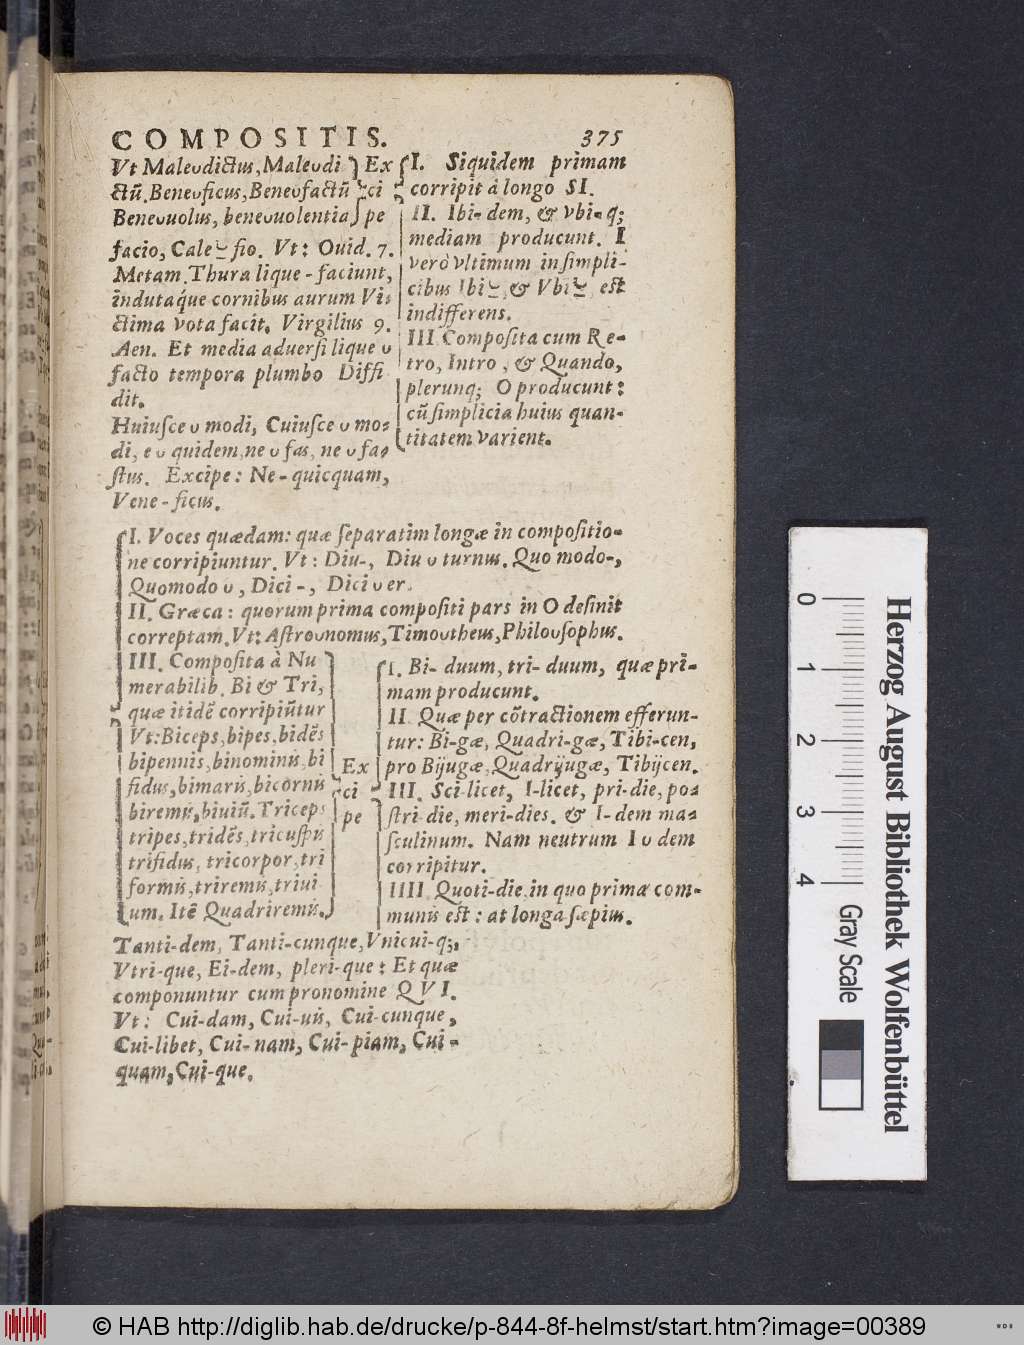 COMPOSITIS. 375
Vt Maleυdictus, Maleυdi
ctū. Beneυficus, Beneυfactū
Beneυuolus, beneυuolentia
Ex
ci
pe
facio, Cale ⏓ fio. Vt: Ouid. 7.
Metam. Thura lique - faciunt,
indutaq́ue cornibus aurum Vi⸗
ctima vota facit. Virgilius 9.
Aen. Et media aduersi lique υ
facto tempora plumbo Diffi
dit.
Huiusce υ modi, Cuiusce υ mo⸗
di, e υ quidem, ne υ fas, ne υ fa⸗
stus. Excipe: Ne - quicquam,
Vene - ficus.
I. Siquidem primam
corripit à longo SI.
II. Ibi- dem, & vbi- q;
mediam producunt. I
verò vltimum in simpli-
cibus Ibi ⏓, & Vbi ⏓, est
indifferens.
III Composita cum Re-
tro, Intro, & Quando,
plerunq; O producunt:
cū simplicia huius quan-
titatem varient.
I. Voces quædam: quæ separatim longæ in compositio-
ne corripiuntur. Vt: Diu-, Diu υ turnus. Quo modo-,
Quomodo υ, Dici -, Dici υ er.
II. Græca: quorum prima compositi pars in O desinit
correptam. Vt: Astroυnomus, Timoυtheus, Philoυsophus.
III. Composita à Nu
merabilib. Bi & Tri,
quæ itidē corripiūtur
Vt: Biceps, bipes, bidēs
bipennis, binominis, bi
fidus, bimaris, bicornis
biremis, biuiū. Triceps
tripes, tridēs, tricuspis
trifidus, tricorpor, tri
formis, triremis, triui
um. Itē Quadriremis.
Ex
ci
pe
I. Bi- duum, tri- duum, quæ pri-
mam producunt.
II. Quæ per cōtractionem efferun-
tur: Bi-gæ, Quadri-gæ, Tibi-cen,
pro Bijugæ, Quadrijugæ, Tibijcen.
III. Sci-licet, I-licet, pri-die, po⸗
stri-die, meri-dies. & I-dem ma⸗
sculinum. Nam neutrum I υ dem
corripitur.
IIII. Quoti-die, in quo prima com-
munis est: at longa sæpius.
Tanti-dem, Tanti-cunque, Vnicui-q;,
Vtri-que, Ei-dem, pleri-que: Et quæ
componuntur cum pronomine QVI.
Vt: Cui-dam, Cui-uis, Cui-cunque,
Cui-libet, Cui-nam, Cui-piam, Cui-
quam, Cui-que.
0 1 2 3 4
Gray Scale
Herzog August Bibliothek Wolfenbüttel
© HAB http://diglib.hab.de/drucke/p-844-8f-helmst/start.htm?image=00389